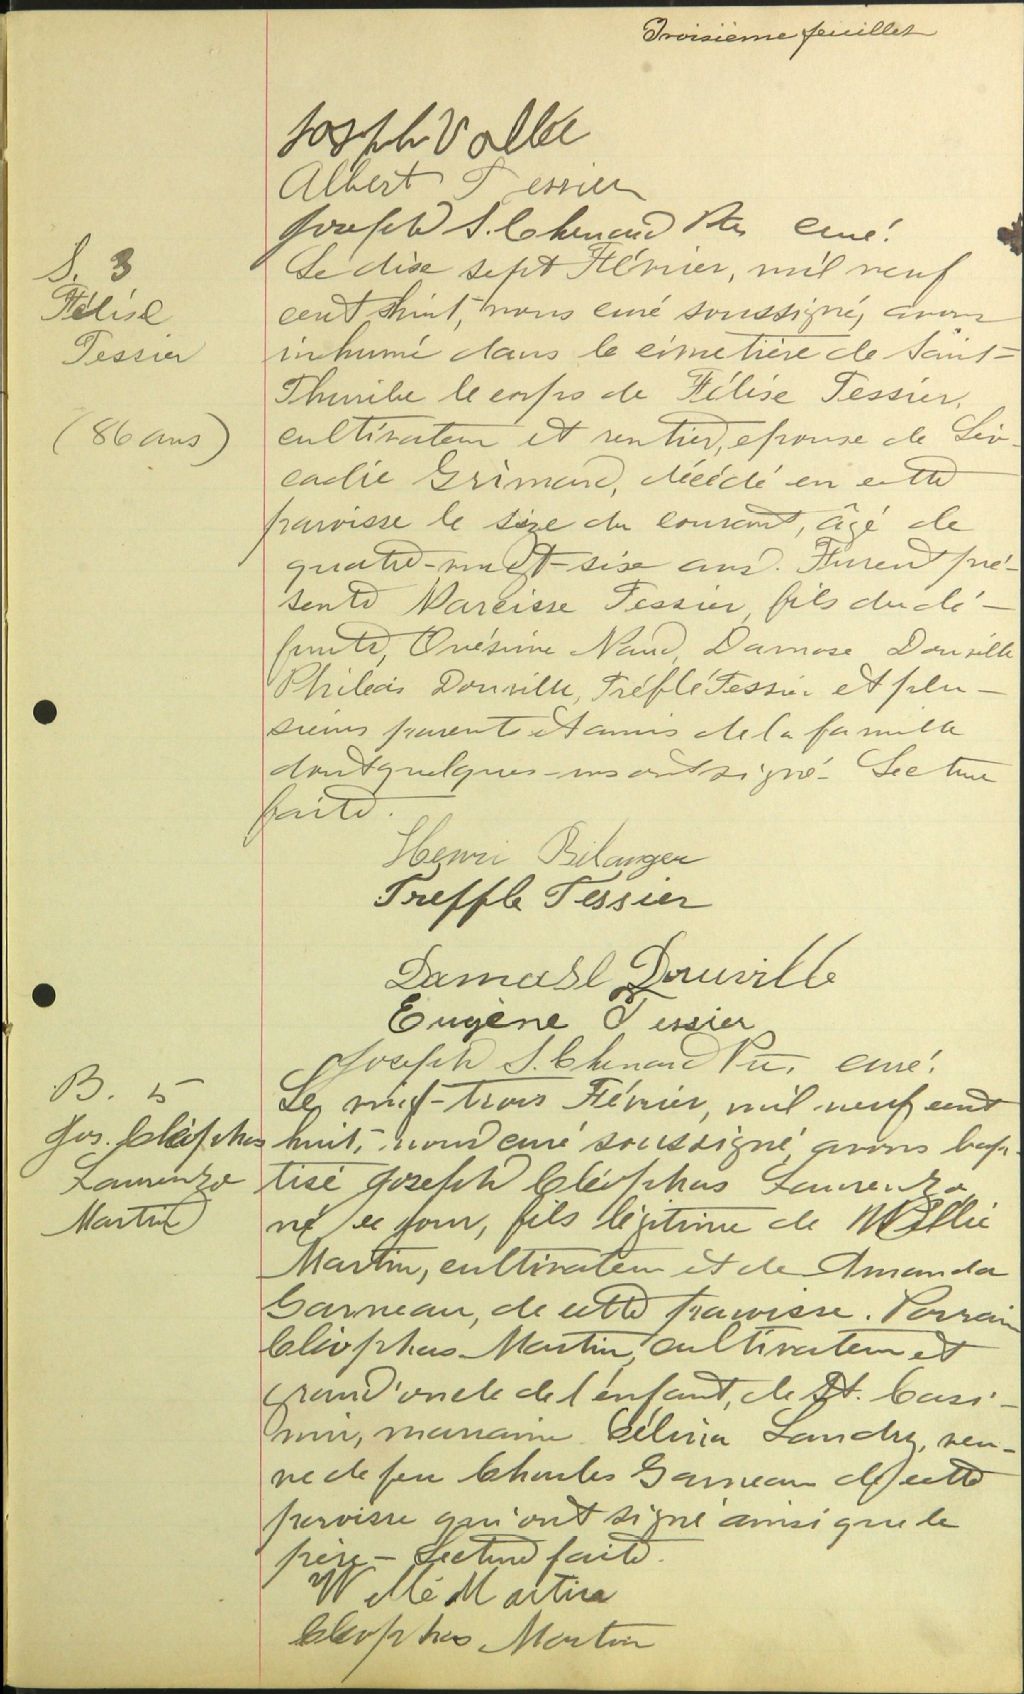 Troisième feuillet
Joseph Vallée
Albert Tessier
Joseph S. Chenard Ptre curé.
S. 3
Félise
Tessier
(86 ans)
Le dix sept Février, mil neuf
cent huit, nous curé soussigné, avons
inhumé dans le cimetière de Saint-
Thuribe le corps de Félise Tessier,
cultivateur et rentier, epoux de Léo-
cadie Grimard, décédé en cette
paroisse le size du courant, âgé de
quatre-vingt-six ans. Furent pré-
sents Narcisse Tessier, fils du dé-
funt, Onésime Naud, Damase Douville
Philéas Douville, Tréflé Tessier et plu-
sieurs parents et amis de la famille
dont quelques-uns ont signé - Lecture
faite.
Henri Bélanger
Treffle Tessier
Damase Douville
Eugène Tessier
Joseph S. Chenard Ptre, curé.
B. 5
Jos. Cléophas
Laurenzo
Martin
Le vingt-trois Février, mil neuf cent
huit, nous curé soussigné, avons bap-
tisé Joseph Cléophas Laurenzo
né ce jour, fils légitime de Willie
Martin, cultivateur et de Amanda
Garneau, de cette paroisse. Parrain
Cléophas Martin, cultivateur et
grand'oncle de l'enfant, de St. Casi-
mir, marraine Célina Landry, veu-
ve de feu Charles Garneau de cette
paroisse qui ont signé ainsi que le
père - Lecture faite.
Willé Martin
Cléophas Martin